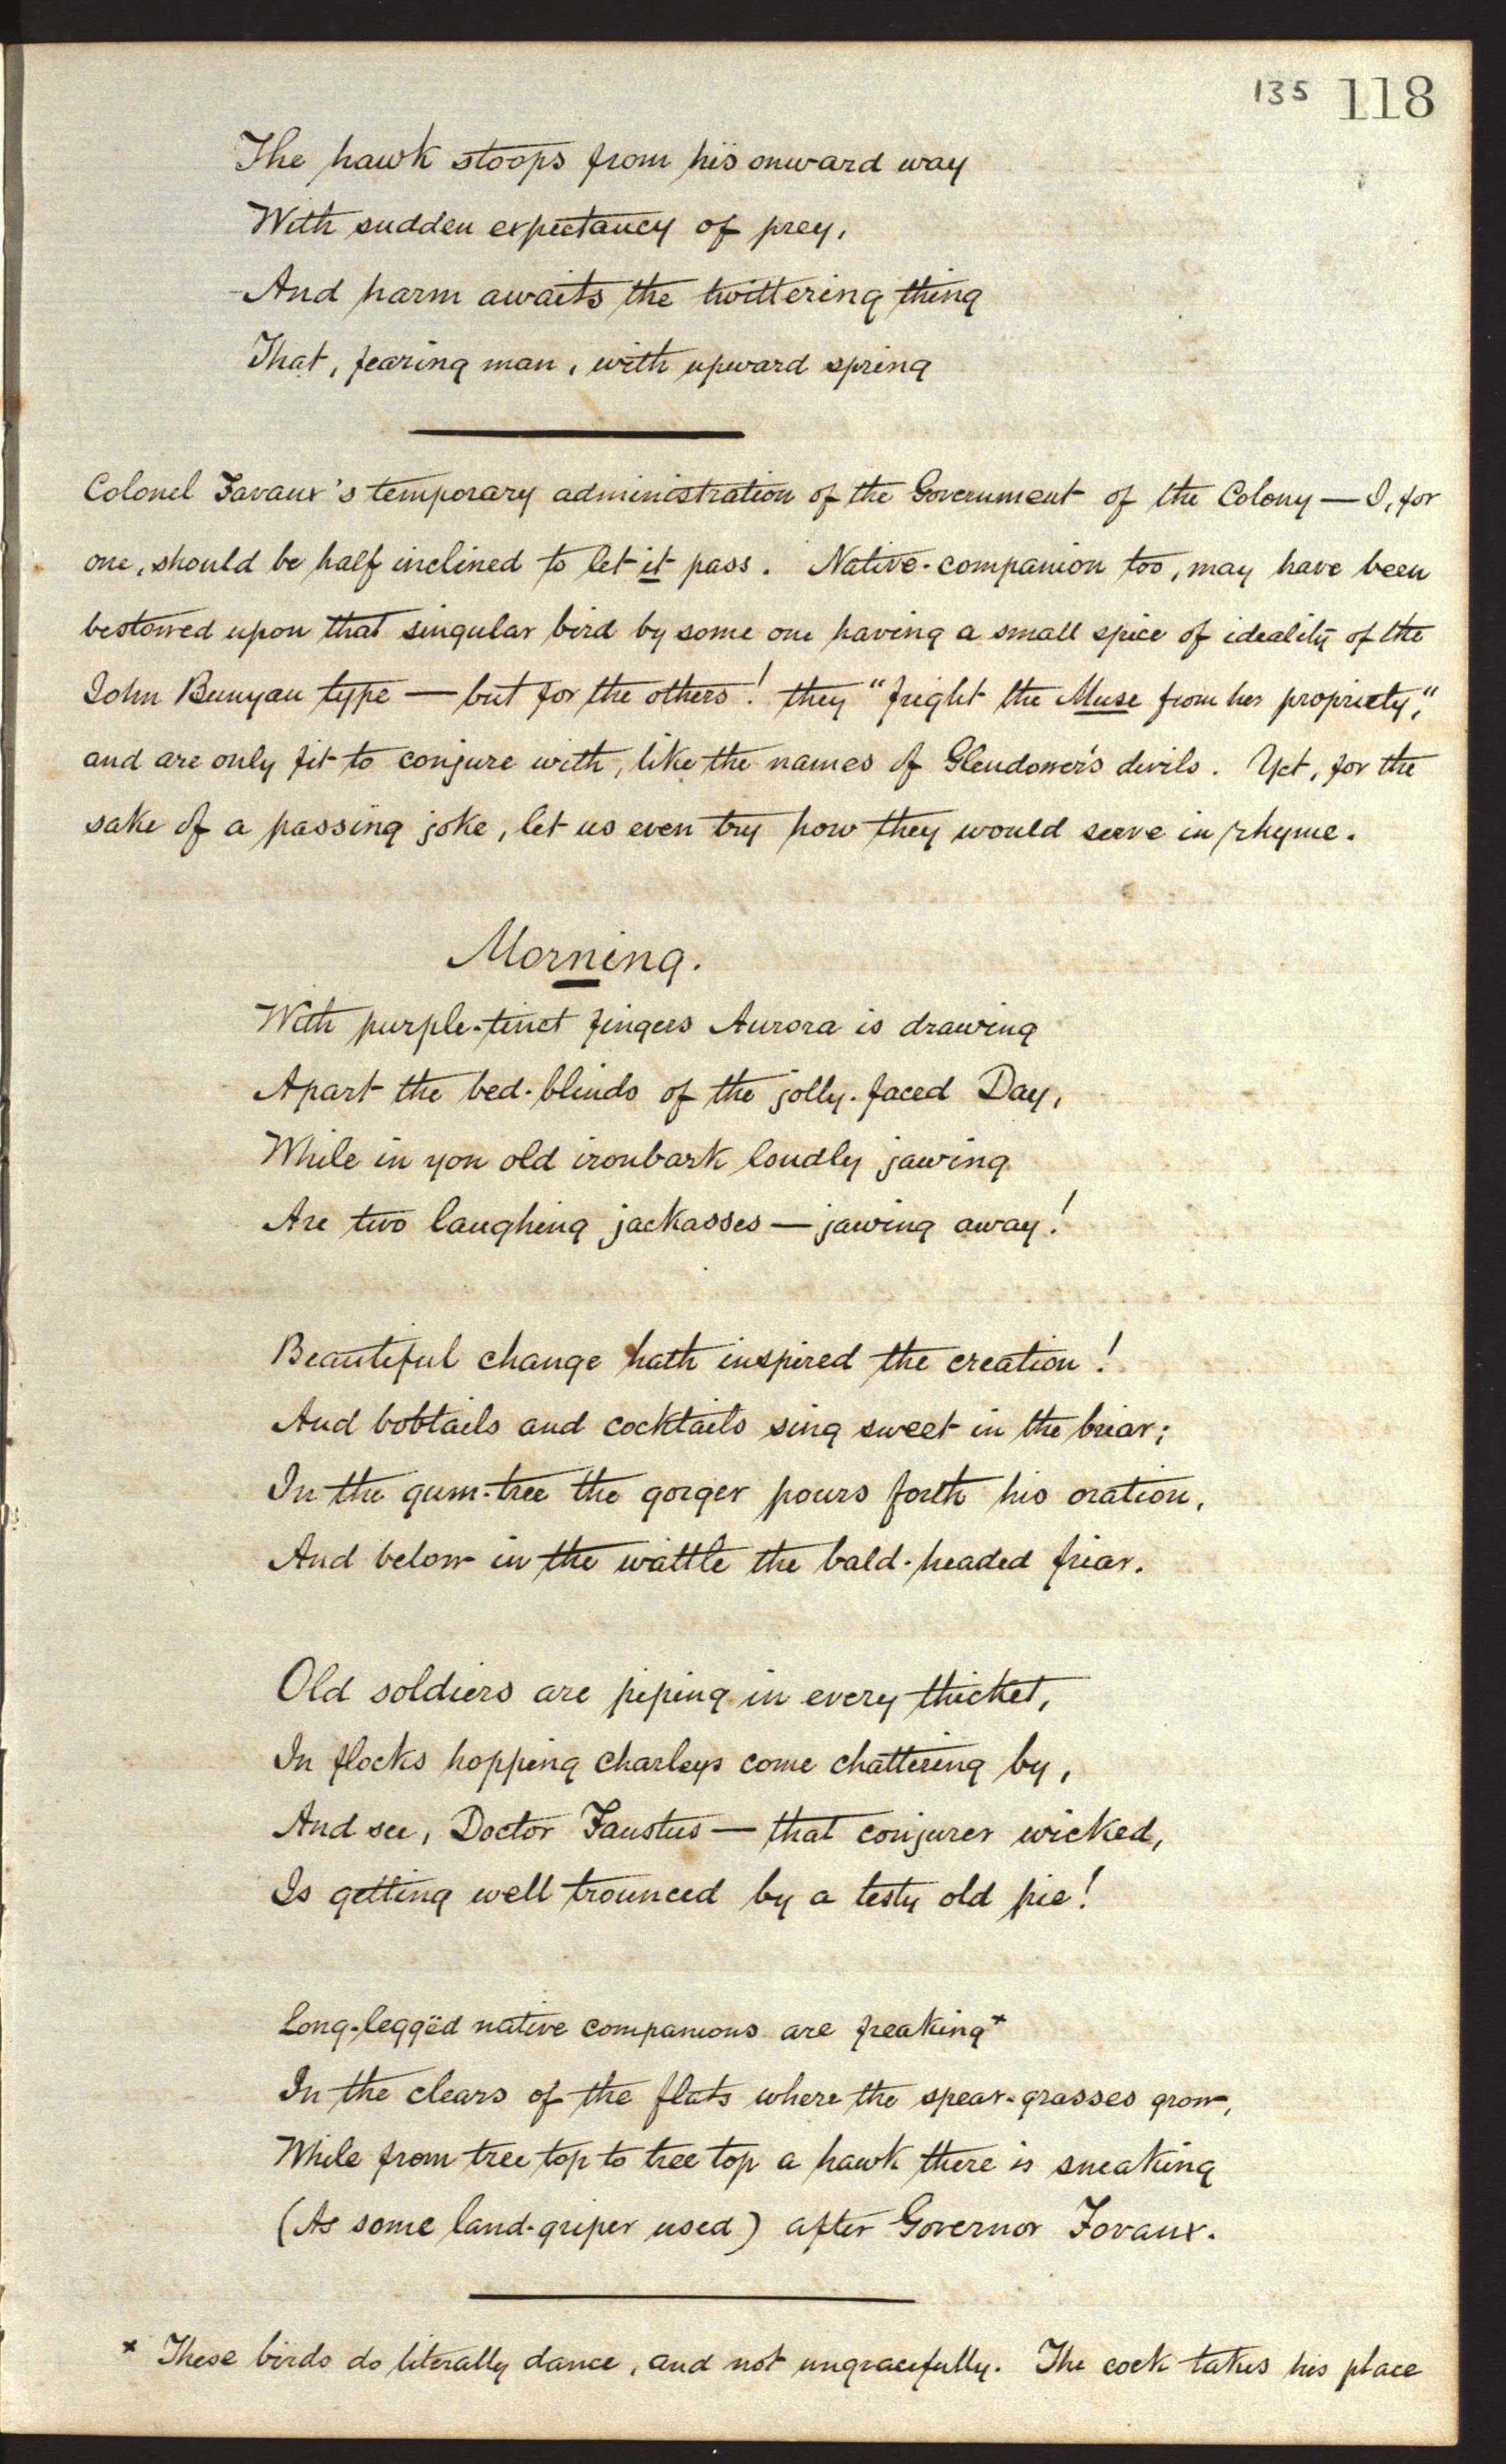 135 118
The hawk stoops from his onward way
With sudden expectancy of prey,
And harm awaits the twittering thing
That, fearing man, with upward spring
Colonel Favaux's temporary administration of the Government of the Colony — I, for
one, should be half inclined to let it pass. Native-companion too, may have been
bestowed upon that singular bird by some one having a small spice of ideality of the
John Bunyan type — but for the others! they "fright the Muse from her propriety,"
and are only fit to conjure with, like the names of Glendower's devils. Yet, for the
sake of a passing joke, let us even try how they would serve in rhyme.
Morning.
With purple-tinct fingers Aurora is drawing
Apart the bed-blinds of the jolly-faced Day,
While in yon old ironbark loudly jawing
Are two laughing jackasses — jawing away!
Beautiful change hath inspired the creation!
And bobtails and cocktails sing sweet in the briar;
In the gum-tree the gorger pours forth his oration,
And below in the wattle the bald-headed friar.
Old soldiers are piping in every thicket,
In flocks hopping Charleys come chattering by,
And see, Doctor Faustus — that conjurer wicked,
Is getting well trounced by a testy old pie!
Long-leggëd native companions are freaking*
In the clears of the flats where the spear-grasses grow,
While from tree top to tree top a hawk there is sneaking
(As some land-griper used) after Governor Fovaux.
* These birds do literally dance, and not ungracefully. The cock takes his place